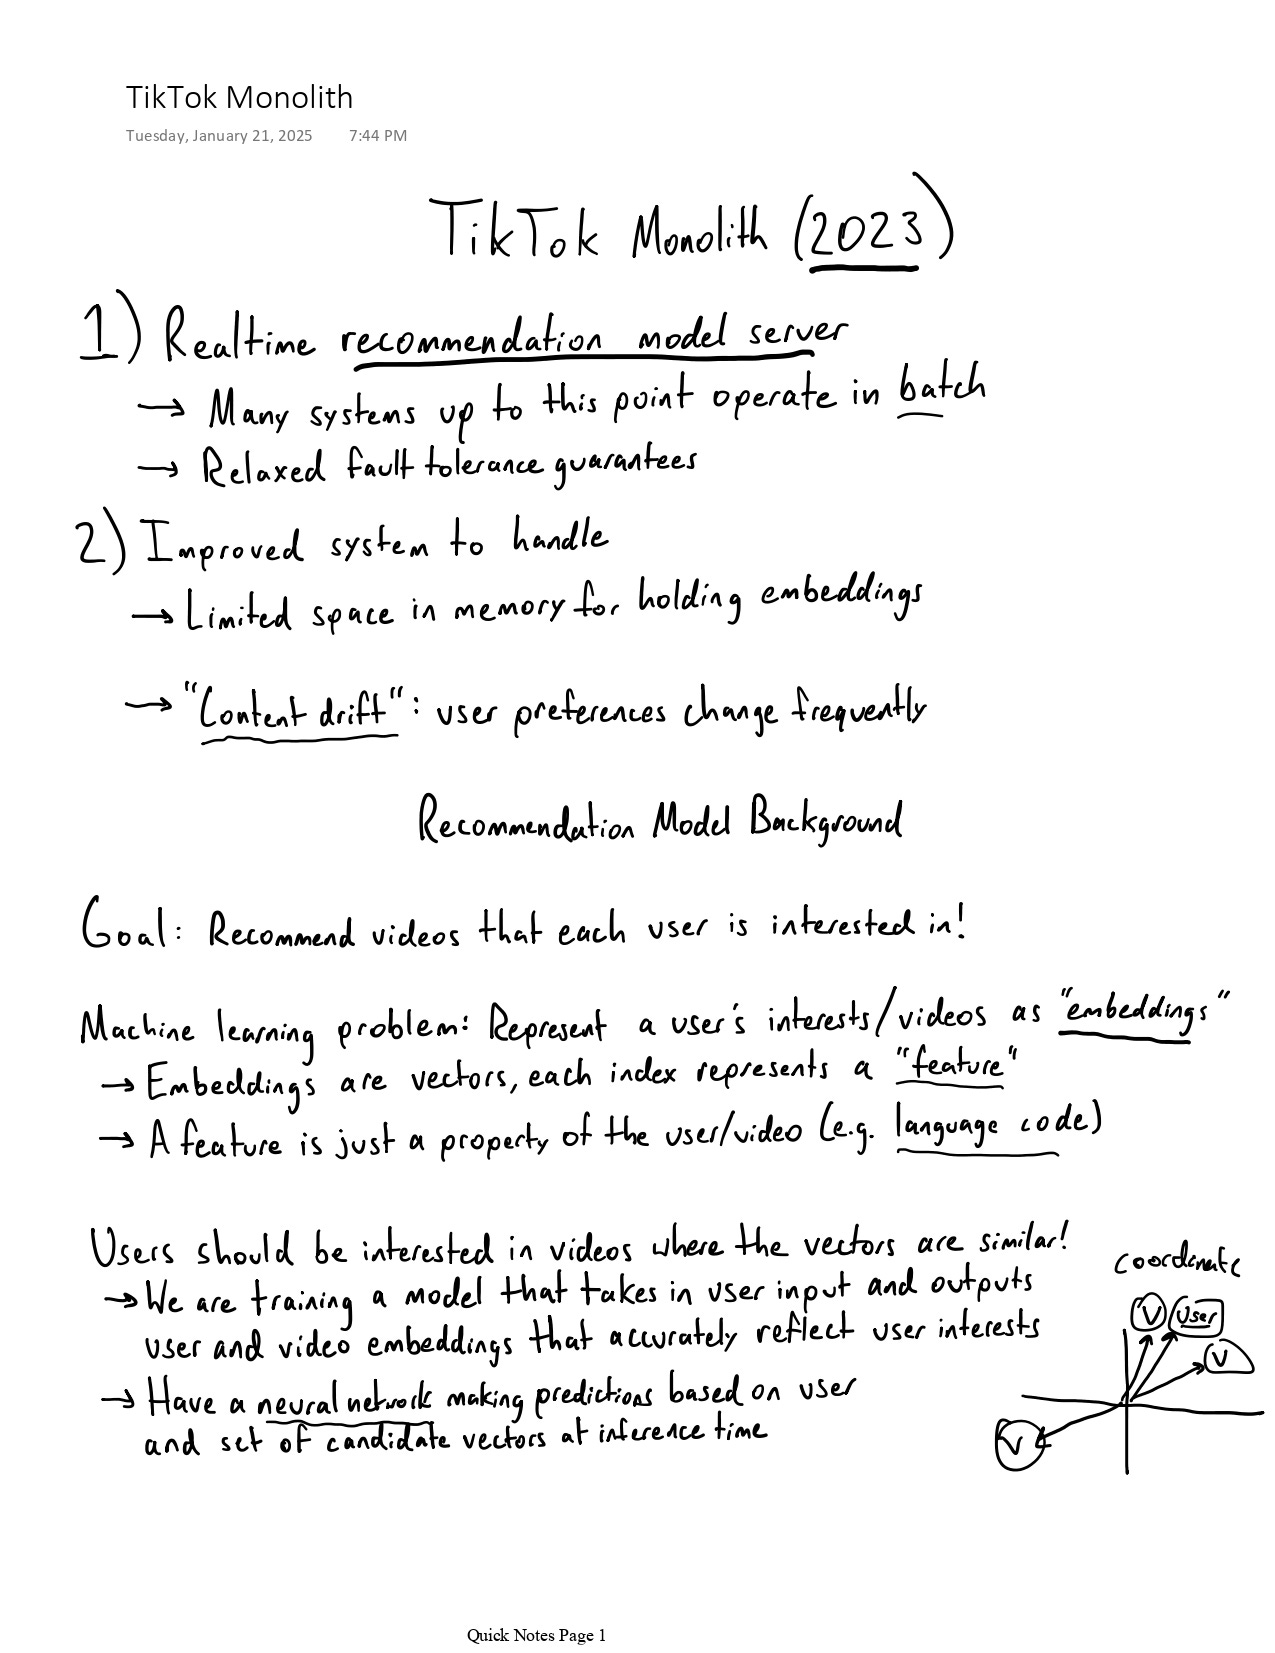 TikTok Monolith
Tuesday, January 21, 2025 7:44 PM
TikTok Monolith (2023)
1) Realtime recommendation model server
→ Many systems up to this point operate in batch
→ Relaxed fault tolerance guarantees
2) Improved system to handle
→ Limited space in memory for holding embeddings
→ "Content drift": user preferences change frequently
Recommendation Model Background
Goal: Recommend videos that each user is interested in!
Machine learning problem: Represent a user's interests/videos as "embeddings"
→ Embeddings are vectors, each index represents a "feature"
→ A feature is just a property of the user/video (e.g. language code)
Users should be interested in videos where the vectors are similar!
→ We are training a model that takes in user input and outputs
user and video embeddings that accurately reflect user interests
→ Have a neural network making predictions based on user
and set of candidate vectors at inference time
coordinate
V User
V
V
Quick Notes Page 1